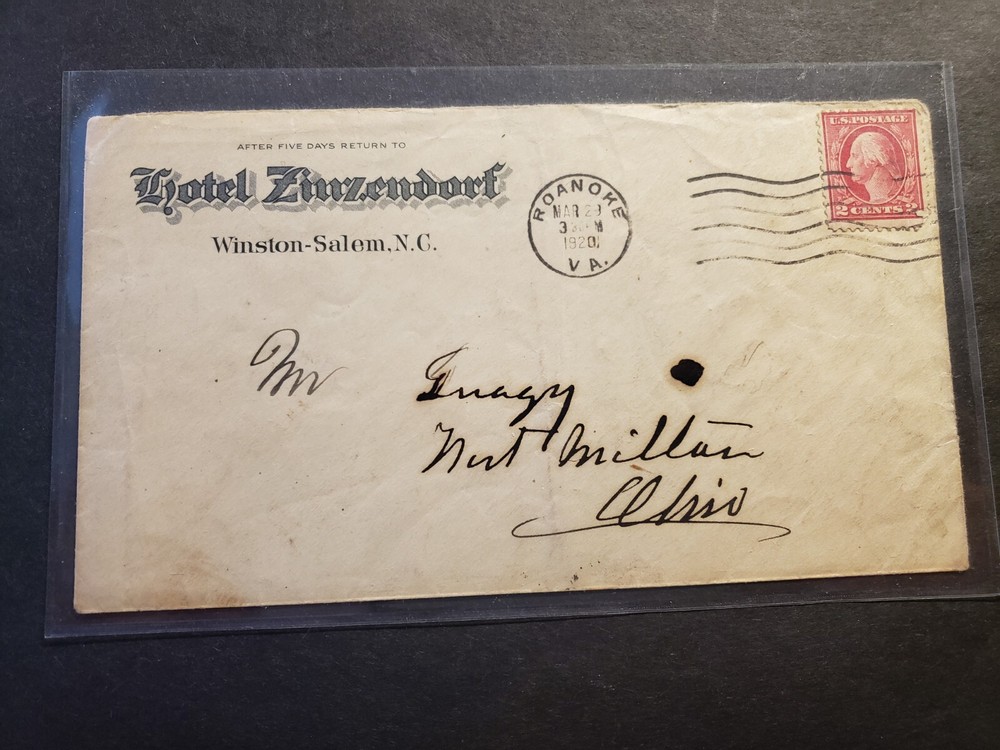 AFTER FIVE DAYS RETURN TO
Hotel Zinzendorf
Winston-Salem, N.C.
ROANOKE
MAR 29
1920
VA.
U.S. POSTAGE
2 CENTS 2
Mr Gnagy
West Milton
Ohio